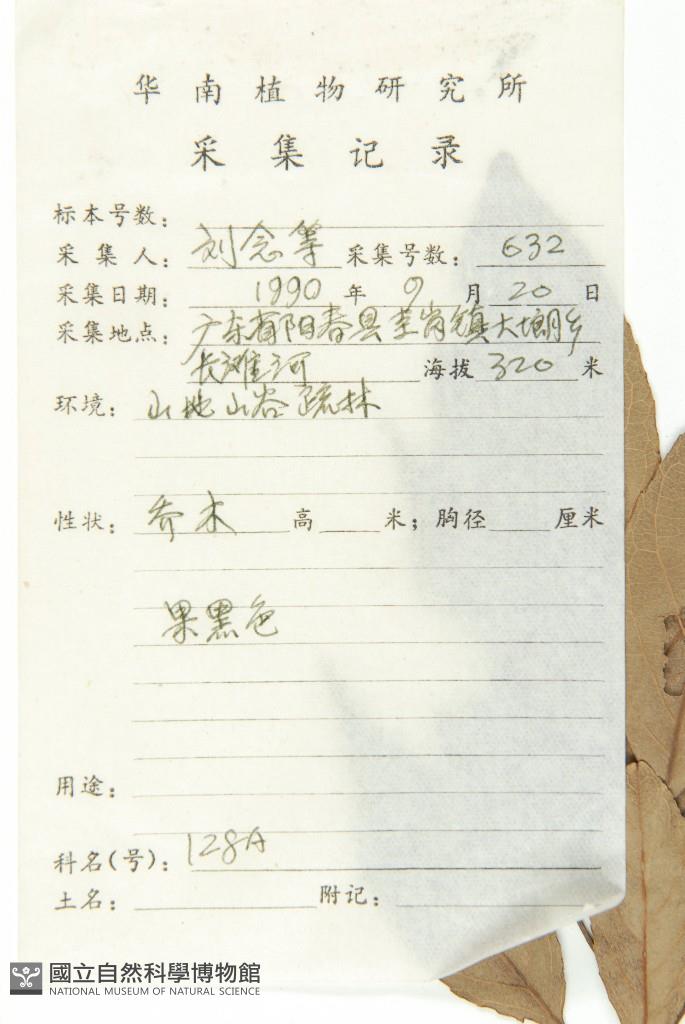 华南植物研究所
采集记录
标本号数：
采集人：刘念等 采集号数：632
采集日期：1990年9月20日
采集地点：广东省阳春县圭岗镇大塱乡
长滩河 海拔320米
环境：山地山谷疏林
性状：乔木 高 米；胸径 厘米
果黑色
用途：
科名(号)：128A
土名： 附记：
國立自然科學博物館
NATIONAL MUSEUM OF NATURAL SCIENCE